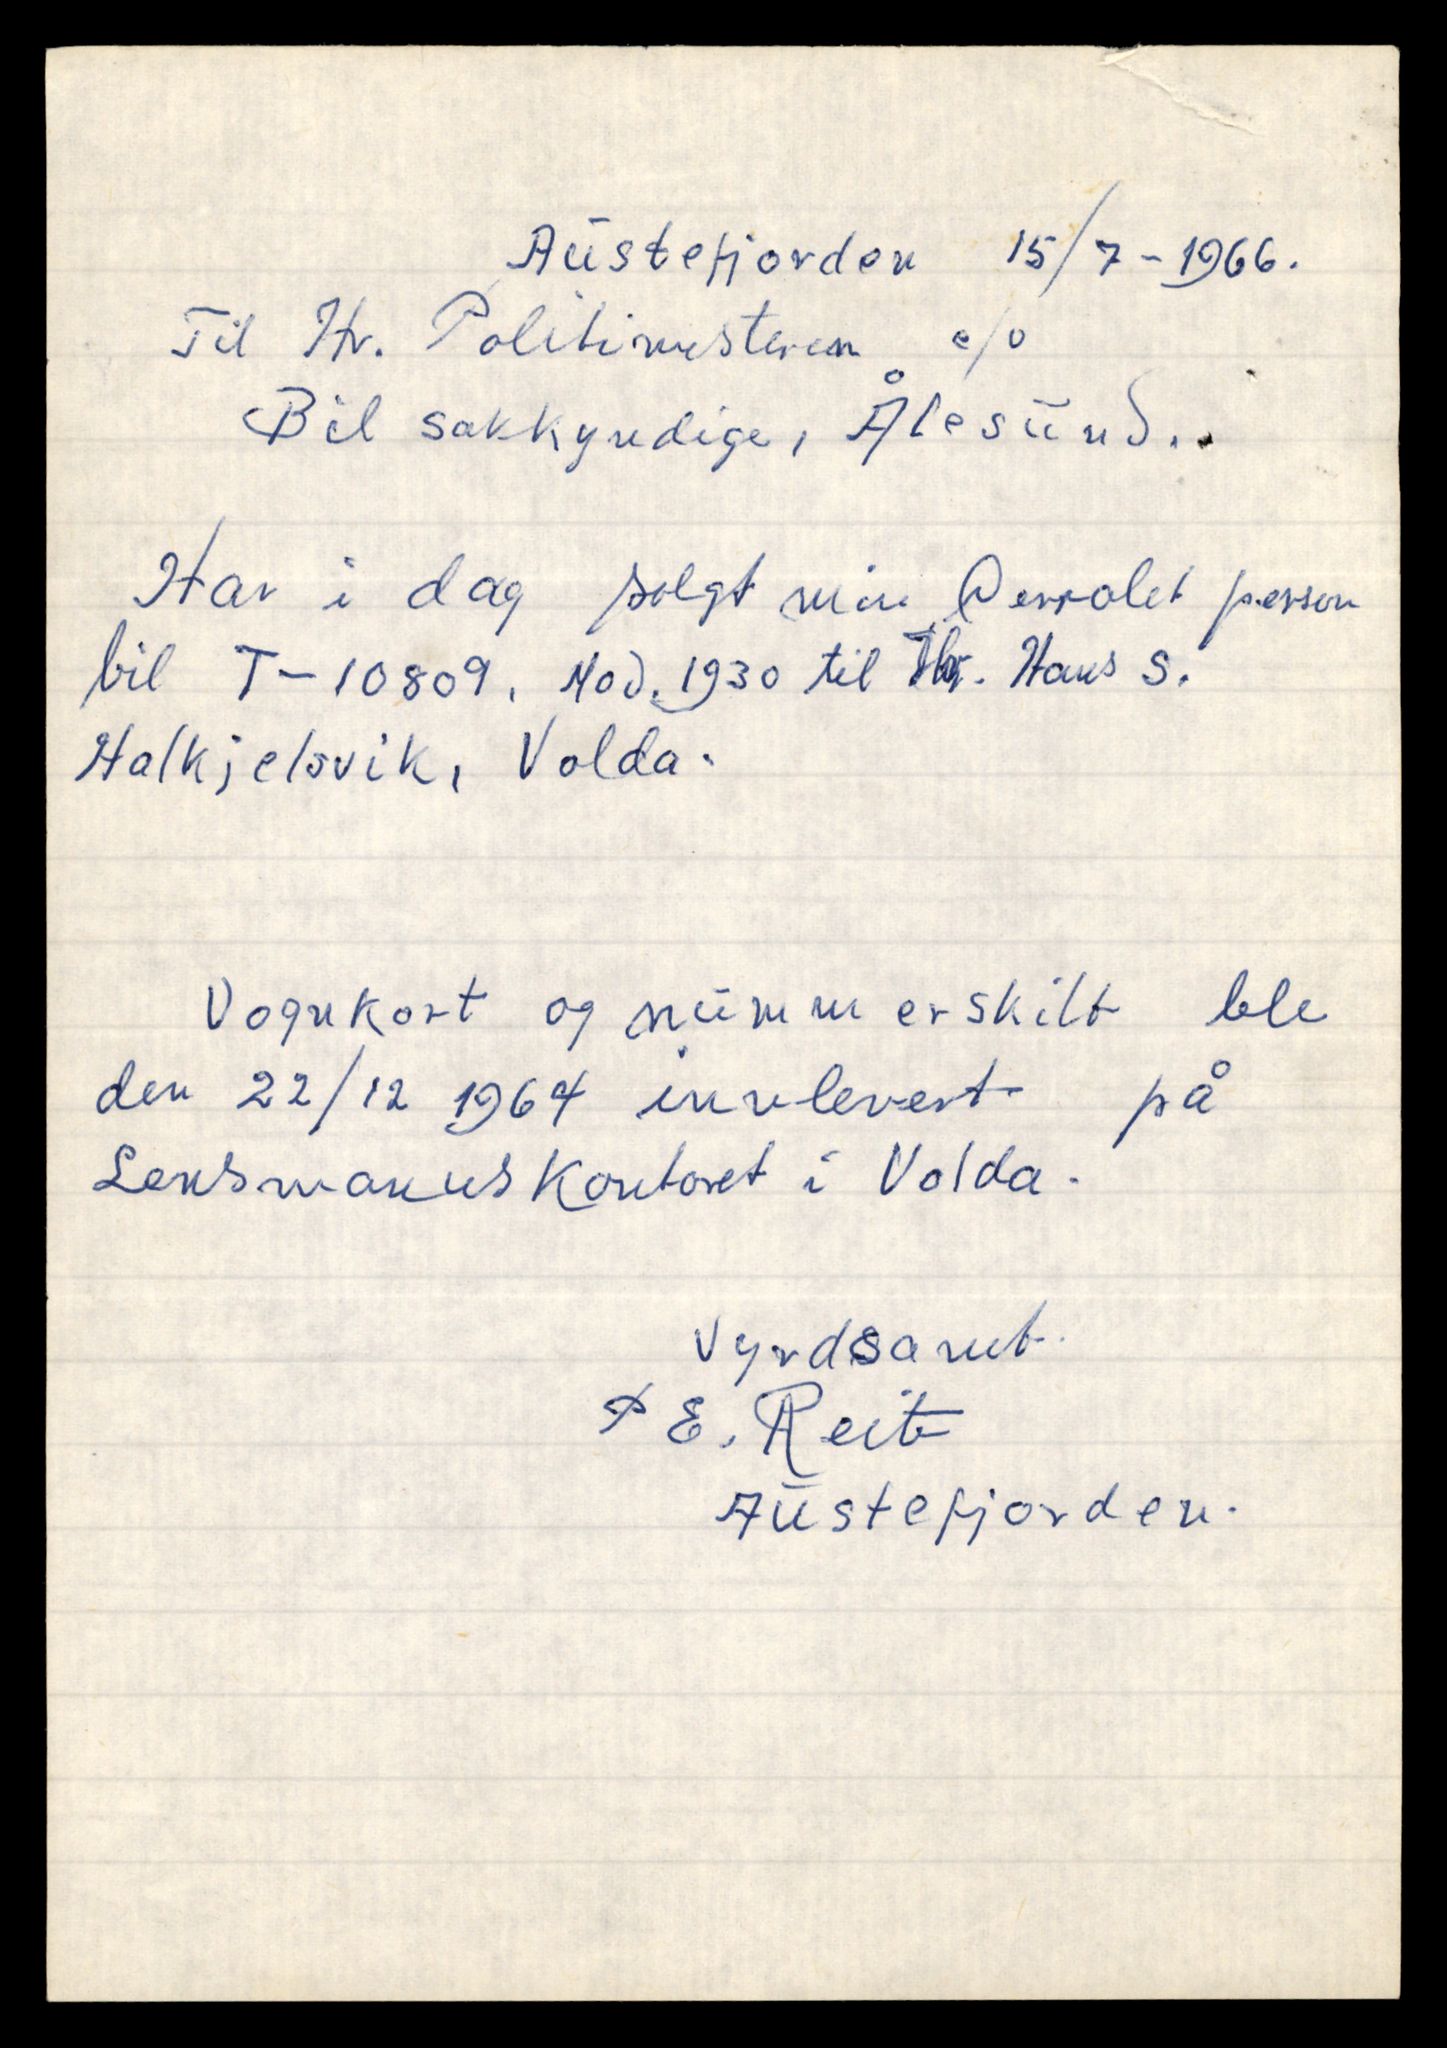 Austefjorden 15/7-1966.
Til Hr. Politimesteren c/o
Bil sakkyndige, Ålesund..
Har i dag solgt min Cevrolet person
bil T-10809, Mod. 1930 til Hr. Hans S.
Halkjelsvik, Volda.
Vognkort og nummerskilt ble
den 22/12 1964 innlevert på
Lensmannskontoret i Volda.
Vyrdsamt
P E. Reite
Austefjorden.